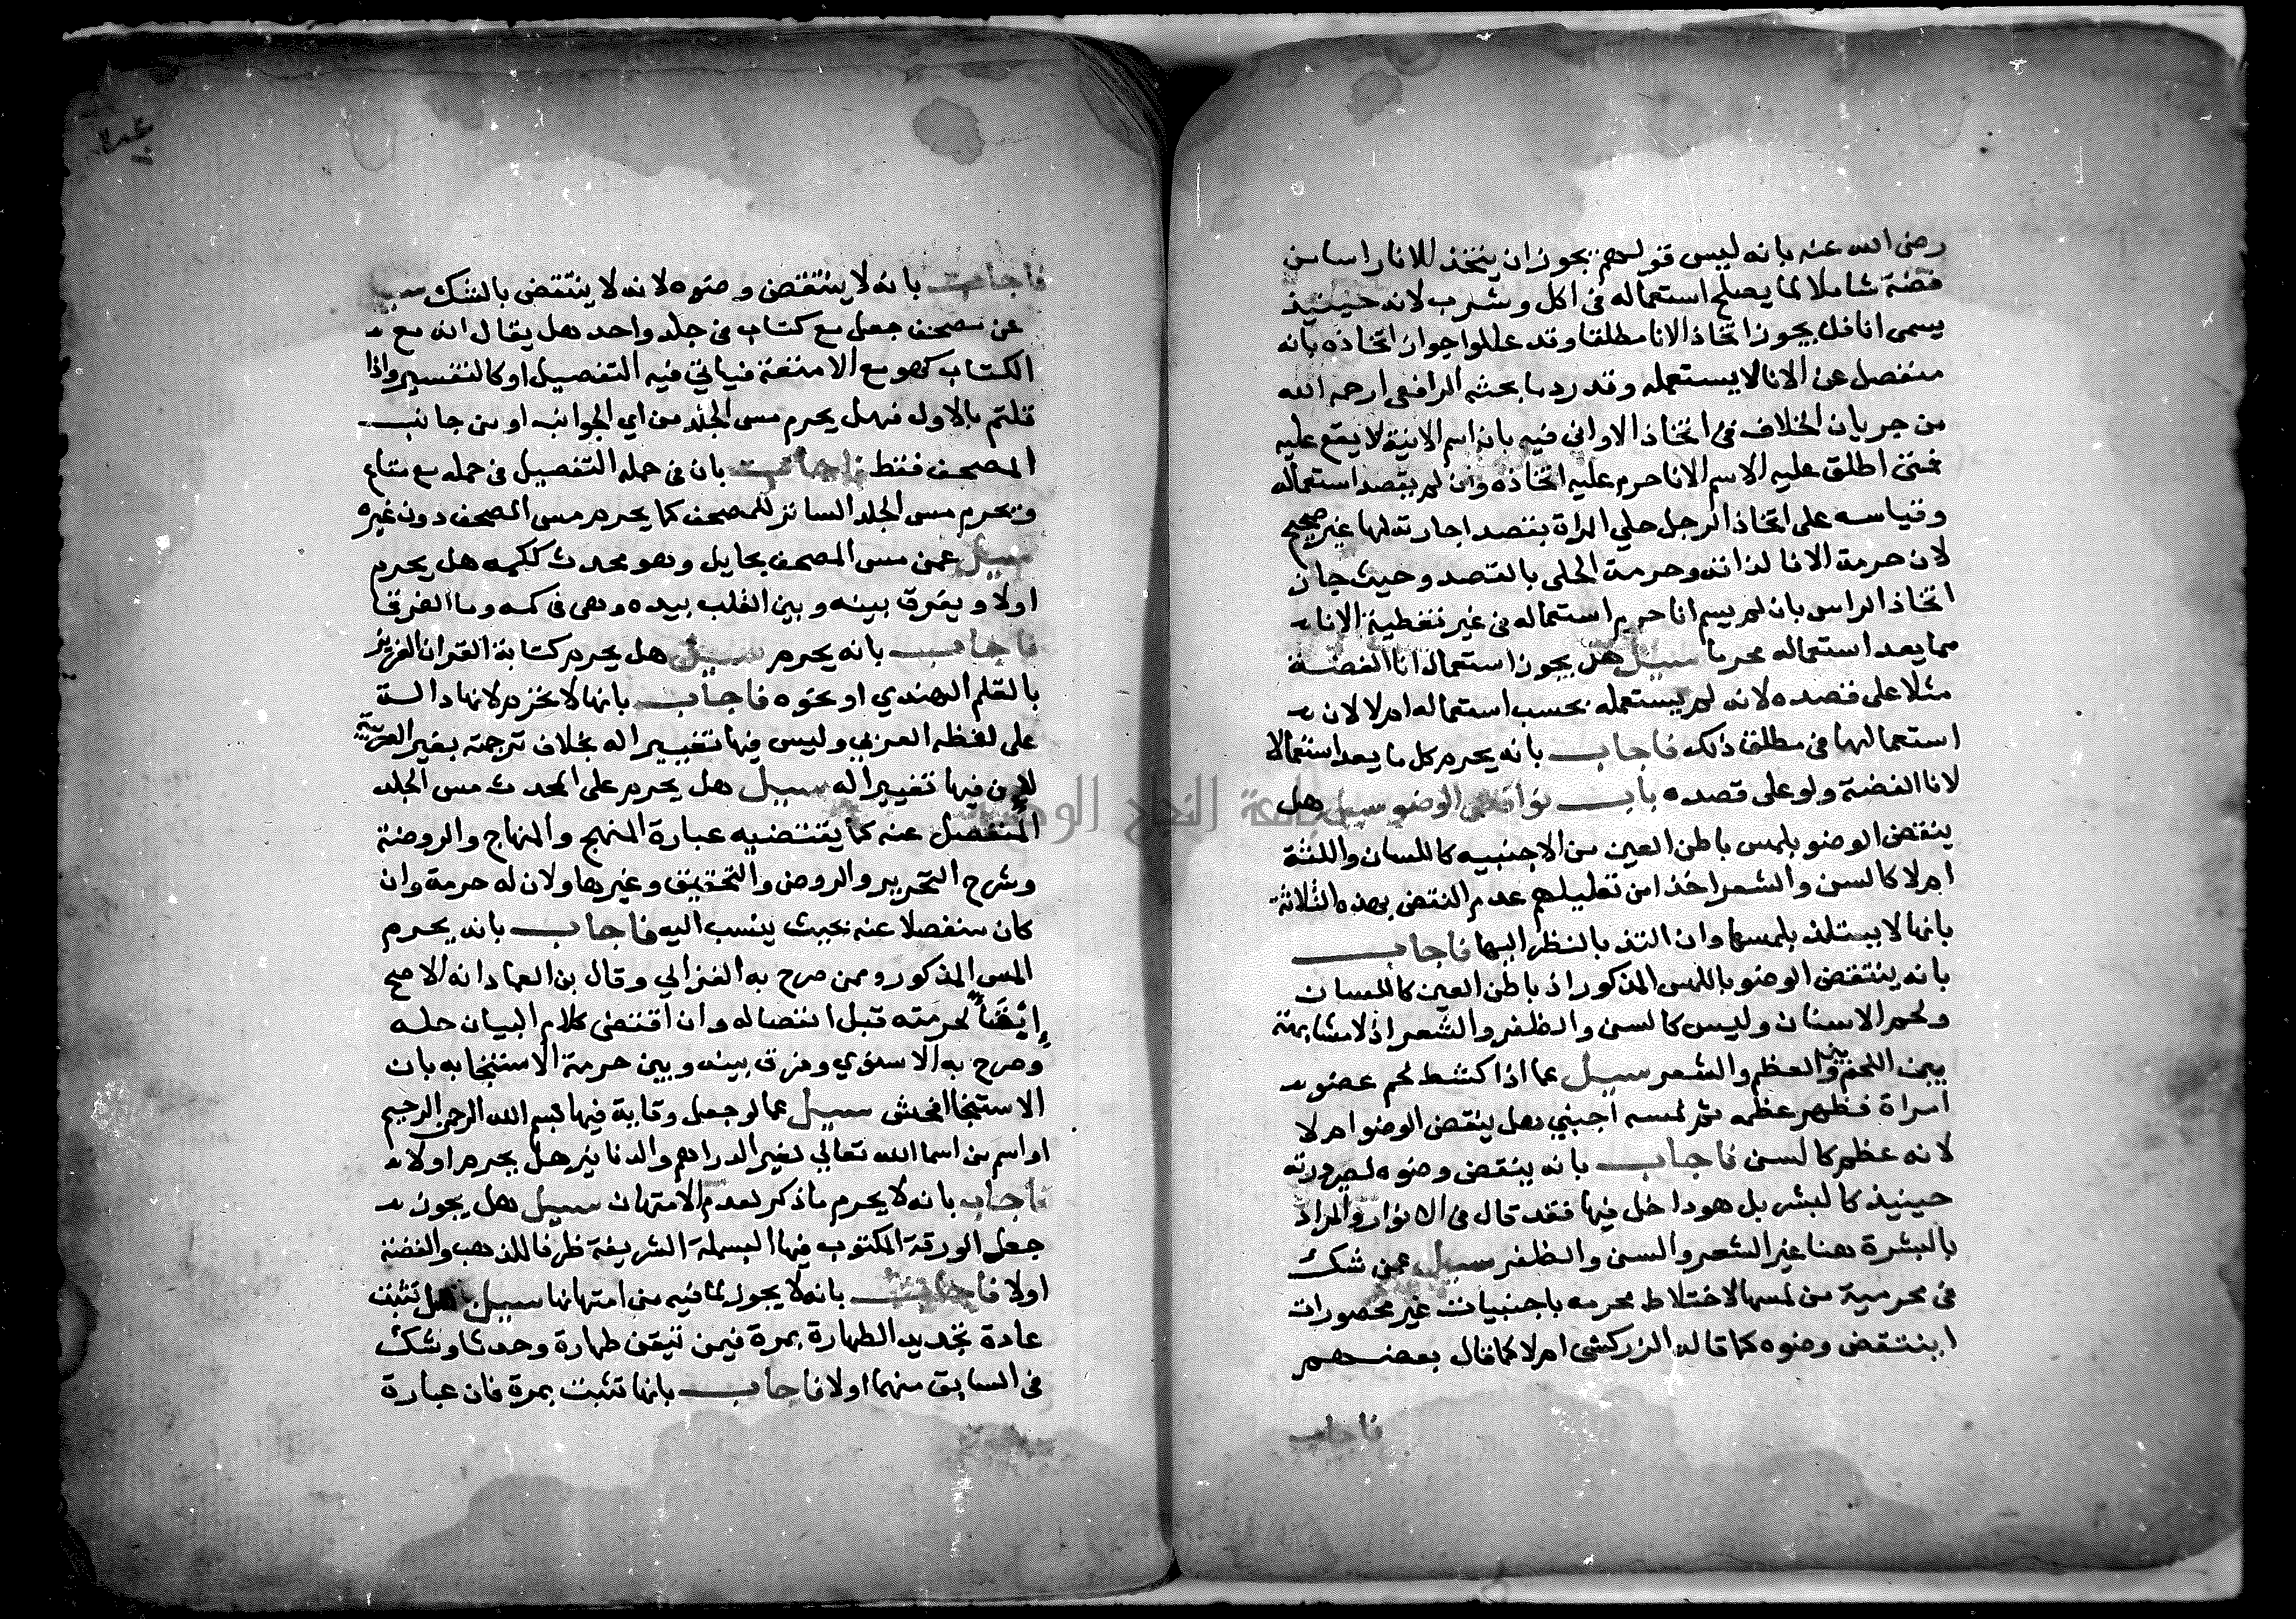 رضى الله عنه بانه ليس قولهم يجوز ان يتخذ للانا راسا من
فضة شاملا لما يصلح استعماله فى اكل وشرب لانه حينيذ
يسمى انا فلا يجوز اتخاذ الانا مطلقا وقد عللوا جواز اتخاذه بانه
منفصل عن الانا لا يستعمله وقد رد ما بحثه الرافعى رحمه الله
من جريان الخلاف فى اتخاذ الاوانى فيه بان اسم الانية لا يقع عليه
فمتى اطلق عليه الاسم الانا حرم عليه اتخاذه وان لم يقصد استعماله
وقياسه على اتخاذ الرجل حلي المراة بقصد اجارته لها غير صحيح
لان حرمة الانا لذاته وحرمة الحلى بالقصد وحيث جاز
اتخاذ الراس بان لم يسم انا حرم استعماله فى غير تغطية الانا
مما يعد استعماله محرما سيل هل يجوز استعمال انا الفضة
مثلا على قصده لانه لم يستعمله بحسب استعماله ام لا لان
استعمالها فى مطلق ذلك فاجاب بانه يحرم كل ما يعد استعمالا
لانا الفضة ولو على قصده باب نواقض الوضو سيل هل
ينقض الوضو بلمس باطن العين من الاجنبيه كاللسان واللثة
ام لا كالسن والشعر اخذا من تعليلهم عدم النقض بهذه الثلاثة
بانها لا يستلذ بلمسها وان التذ بالنظر اليها فاجاب
بانه ينتقض الوضو باللمس المذكور اذ باطن العين كاللسان
ولحم الاسنان وليس كالسن والظفر والشعر اذ لا مشابهة
بين اللحم وبين العظم والشعر سيل عما اذا كشط لحم عضو
امراة فظهر عظمه ثم لمسه اجنبي هل ينقض الوضو ام لا
لانه عظم كالسن فاجاب بانه ينقض وضوه لصيرورته
حينيذ كالبشر بل هو داخل فيها فقد قال فى الانوار والمراد
بالبشرة هنا غير الشعر والسن والظفر سيل عمن شك
فى محرمية من لمسها لاختلاط محرمه باجنبيات غير محصورات
اينتقض وضوه كما قاله الزركشى ام لا كما قال بعضهم
فاجاب
فاجاب بانه لا ينتقض وضوه لانه لا ينتقض بالشك سيل
عن مصحف جعل مع كتاب فى جلد واحد هل يقال انه مع
الكتاب كهو مع الامتعة فياتي فيه التفصيل او كالتفسير واذا
قلتم بالاول فهل يحرم مس الجلد من اي الجوانب او من جانب
المصحف فقط فاجاب بان فى حمله التفصيل فى حمله مع متاع
ويحرم مس الجلد الساتر للمصحف كما يحرم مس المصحف دون غيره
سيل عمن مس المصحف بحايل وهو محدث ككمه هل يحرم
اولا ويفرق بينه وبين القلب بيده وهى فى كمه وما الفرق
فاجاب بانه يحرم سيل هل يحرم كتابة القران العزيز
بالقلم الهندي او نحوه فاجاب بانها لا تحرم لانها دالة
على لفظه العزيز وليس فيها تغيير اله بخلاف ترجمته بغير العربية
لان فيها تغييرا له سيل هل يحرم على المحدث مس الجلد
المنفصل عنه كما يقتضيه عبارة المنهج والمنهاج والروضة
وشرح التحرير والروض والتحقيق وغيرها ولان له حرمة وان
كان منفصلا عنه بحيث ينسب اليه فاجاب بانه يحرم
المس المذكور وممن صرح به الغزالي وقال بن العماد انه الاصح
ايضا لحرمته قبل انفصاله وان اقتضى كلام البيان حله
وصرح به الاسنوي وفرق بينه وبين حرمة الاستنجا به بان
الاستنجا افحش سيل عما لو جعل وقاية فيها بسم الله الرحمن الرحيم
او اسم من اسما الله تعالي لغير الدراهم والدنانير هل يحرم اولا
فاجاب بانه لا يحرم ما ذكر لعدم الامتهان سيل هل يجوز
جعل الورقة المكتوب فيها البسملة الشريفة ظرفا للذهب والفضة
اولا فاجاب بانه لا يجوز لما فيه من امتهانها سيل هل تثبت
عادة تجديد الطهارة بمرة فيمن تيقن طهارة وحدثا وشك
فى السابق منهما اولا فاجاب بانها تثبت بمرة فان عبارة
جامعة النجاح الوطنية